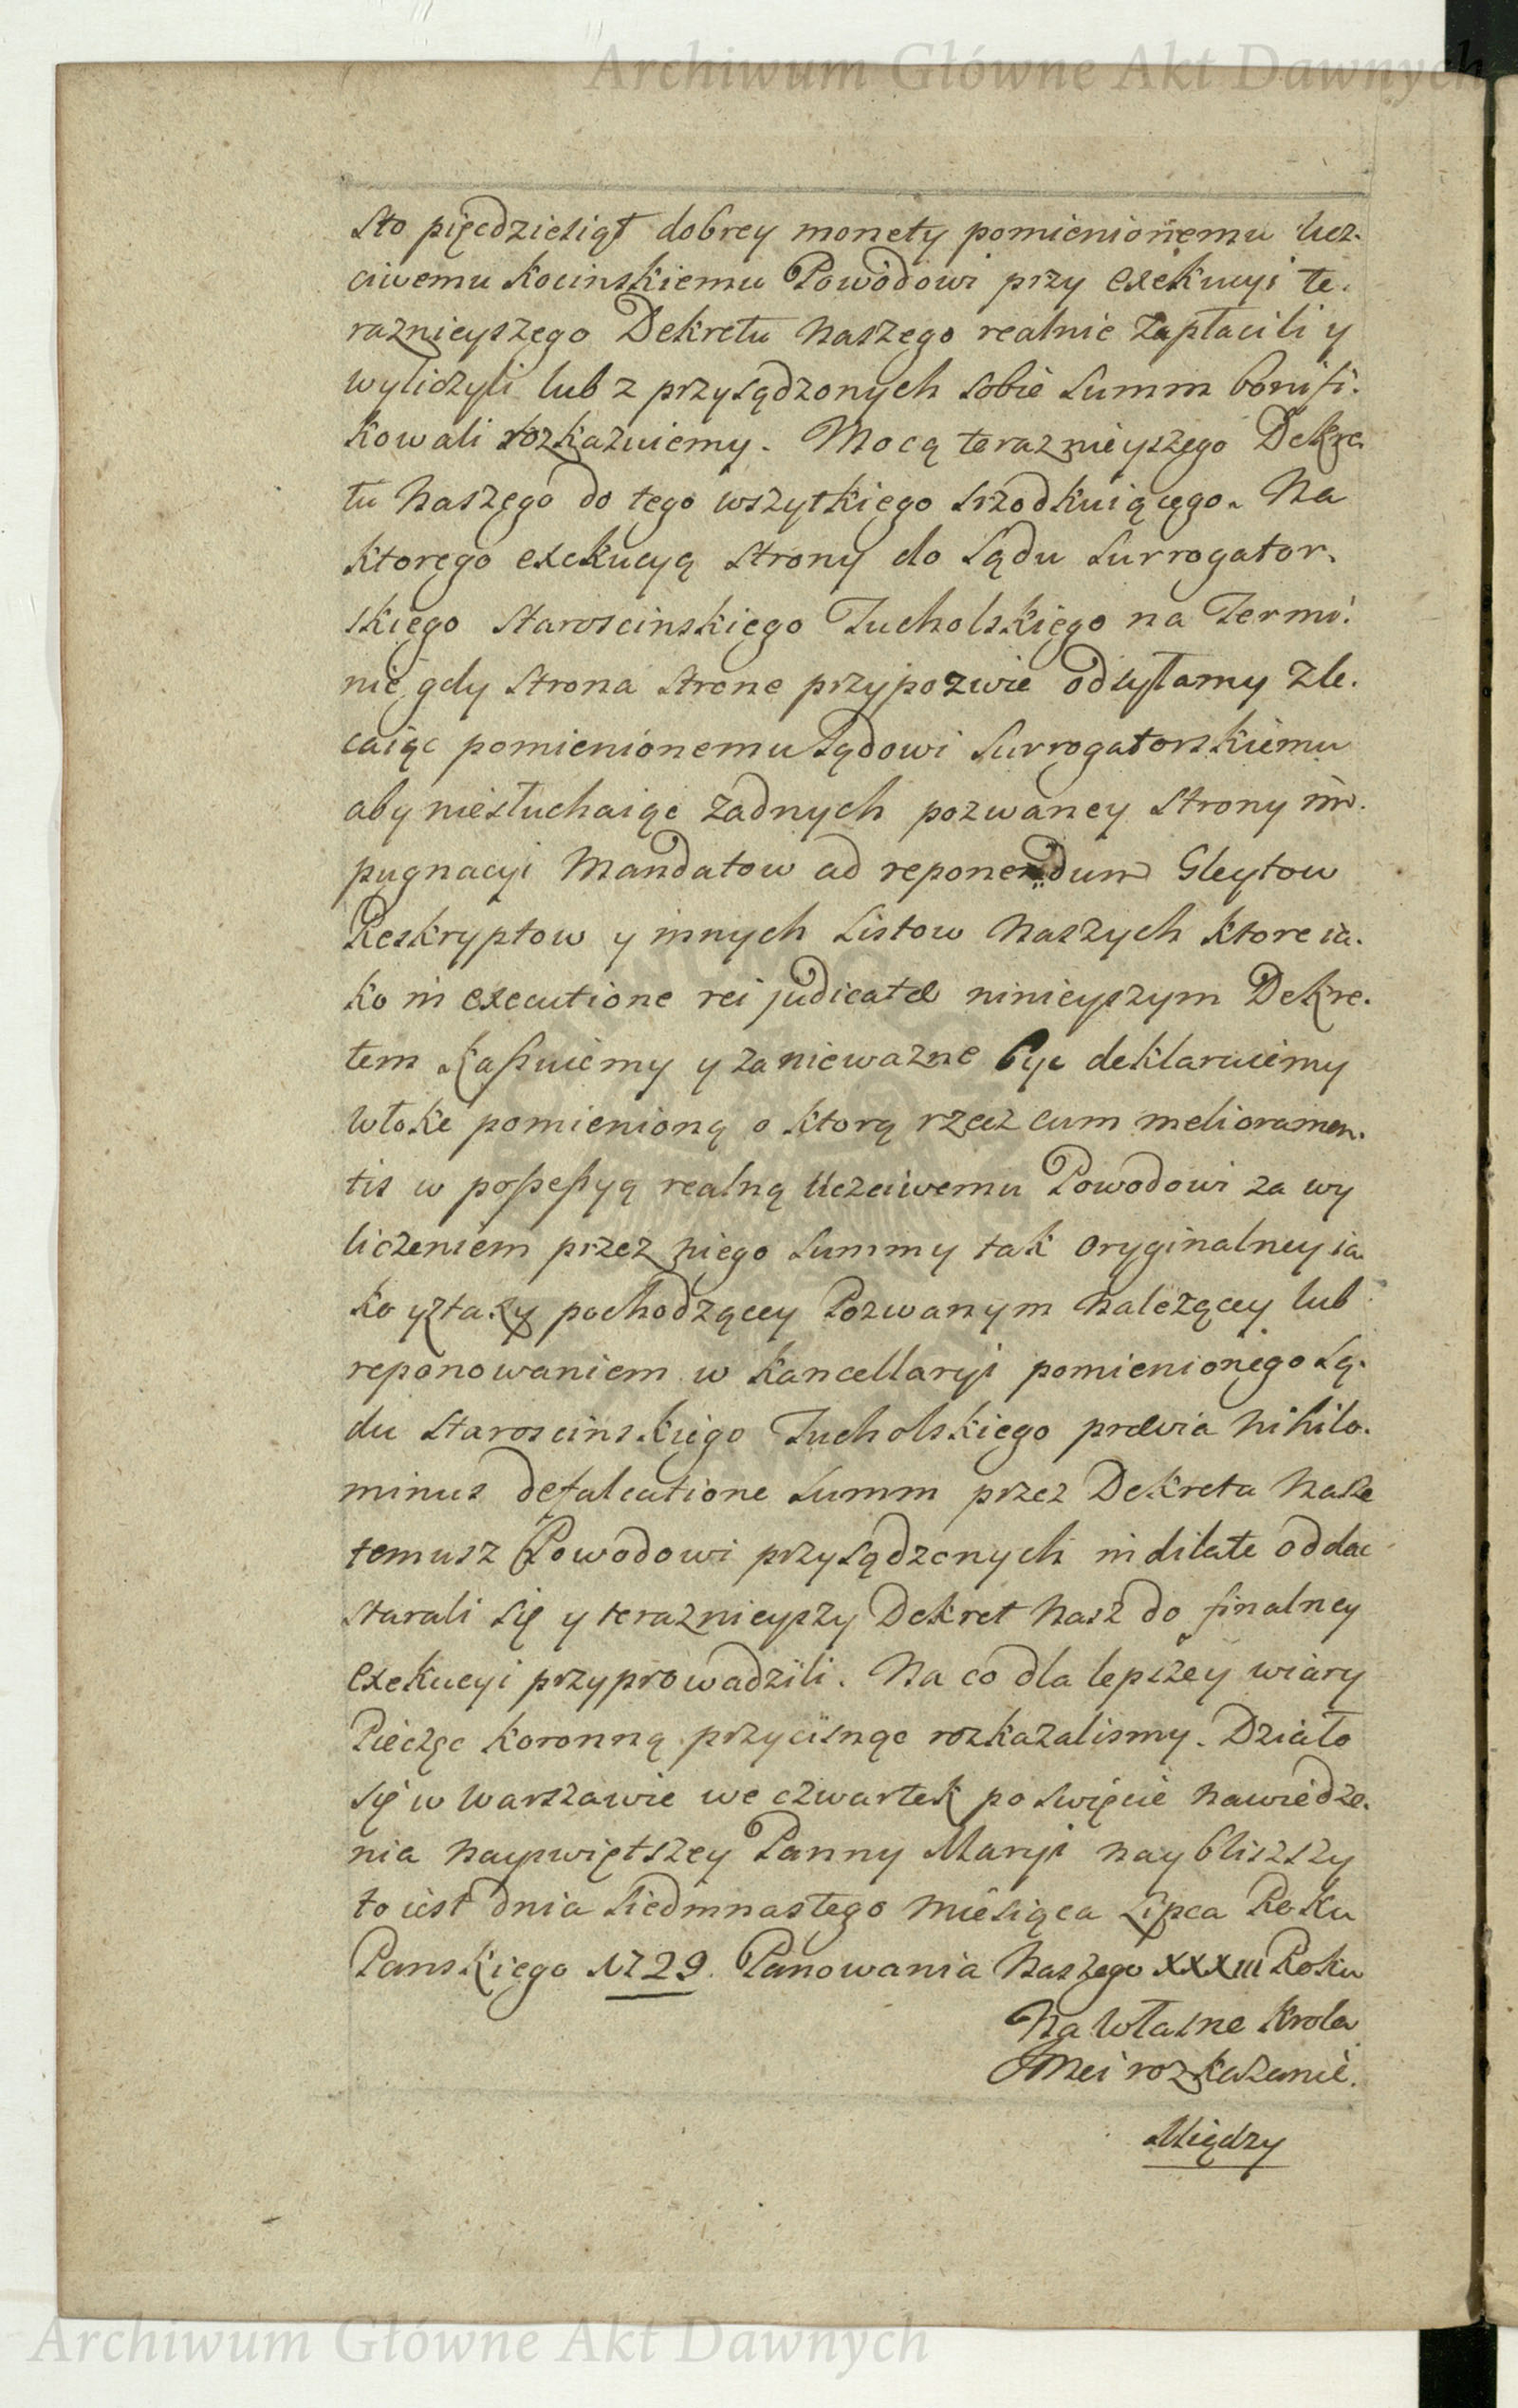 Archiwum Główne Akt Dawnych
Sto pięcdziesiąt dobrey monety pomienionemu Ucz.
ciwemu Kocinskiemu Powodowi przy exekucyi te.
raznieyszego Dekretu Naszego realnie zapłacili y
wyliczyli lub z przysądzonych sobie Summ bonifi.
kowali rozkazuiemy. Mocą teraznieyszego Dekre
tu Naszego do tego wszytkiego srzodkuiącego. Na
ktorego exekucyą strony do Sądu Surrogator.
skiego Staroscinskiego Tucholskiego na Termi.
nie gdy strona strone przypozwie odsyłamy zle.
caiąc pomienionemu Sądowi Surrogatorskiemu
aby niesłuchaiąc żadnych pozwaney strony im.
pugnacyi Mandatow ad reponendum Gleytow
Reskryptow y innych Listow Naszych ktore ia.
ko in executione rei judicatæ ninieyszym Dekre.
tem kassuiemy y za niewazne byc deklaruiemy
Włoke pomienioną o ktorą rzecz cum melioramen.
tis w possessyą realną Uczciwemu Powodowi za wy
liczeniem przez niego Summy tak oryginalney ia
ko y z taxy pochodzącey Pozwanym należącey lub
reponowaniem w Kancellaryi pomienionego Są.
du Staroscinskiego Tucholskiego prævia nihilo.
minus defalcatione Summ przez Dekreta Nasze
temusz Powodowi przysądzonych indilate oddac
starali się y teraznieyszy Dekret Nasz do finalney
exekucyi przyprowadzili. Na co dla lepszey wiary
Pieczęc Koronną przycisnąc rozkazalismy. Działo
się w Warszawie we czwartek po Swięcie Nawiedze.
nia Nayswiętszey Panny Maryi naybliszszy
to iest dnia Siedmnastego Miesiąca Lipca Roku
Panskiego 1729. Panowania Naszego XXXIII Roku
Na własne Krola
Jmci rozkazanie.
Między
Archiwum Główne Akt Dawnych